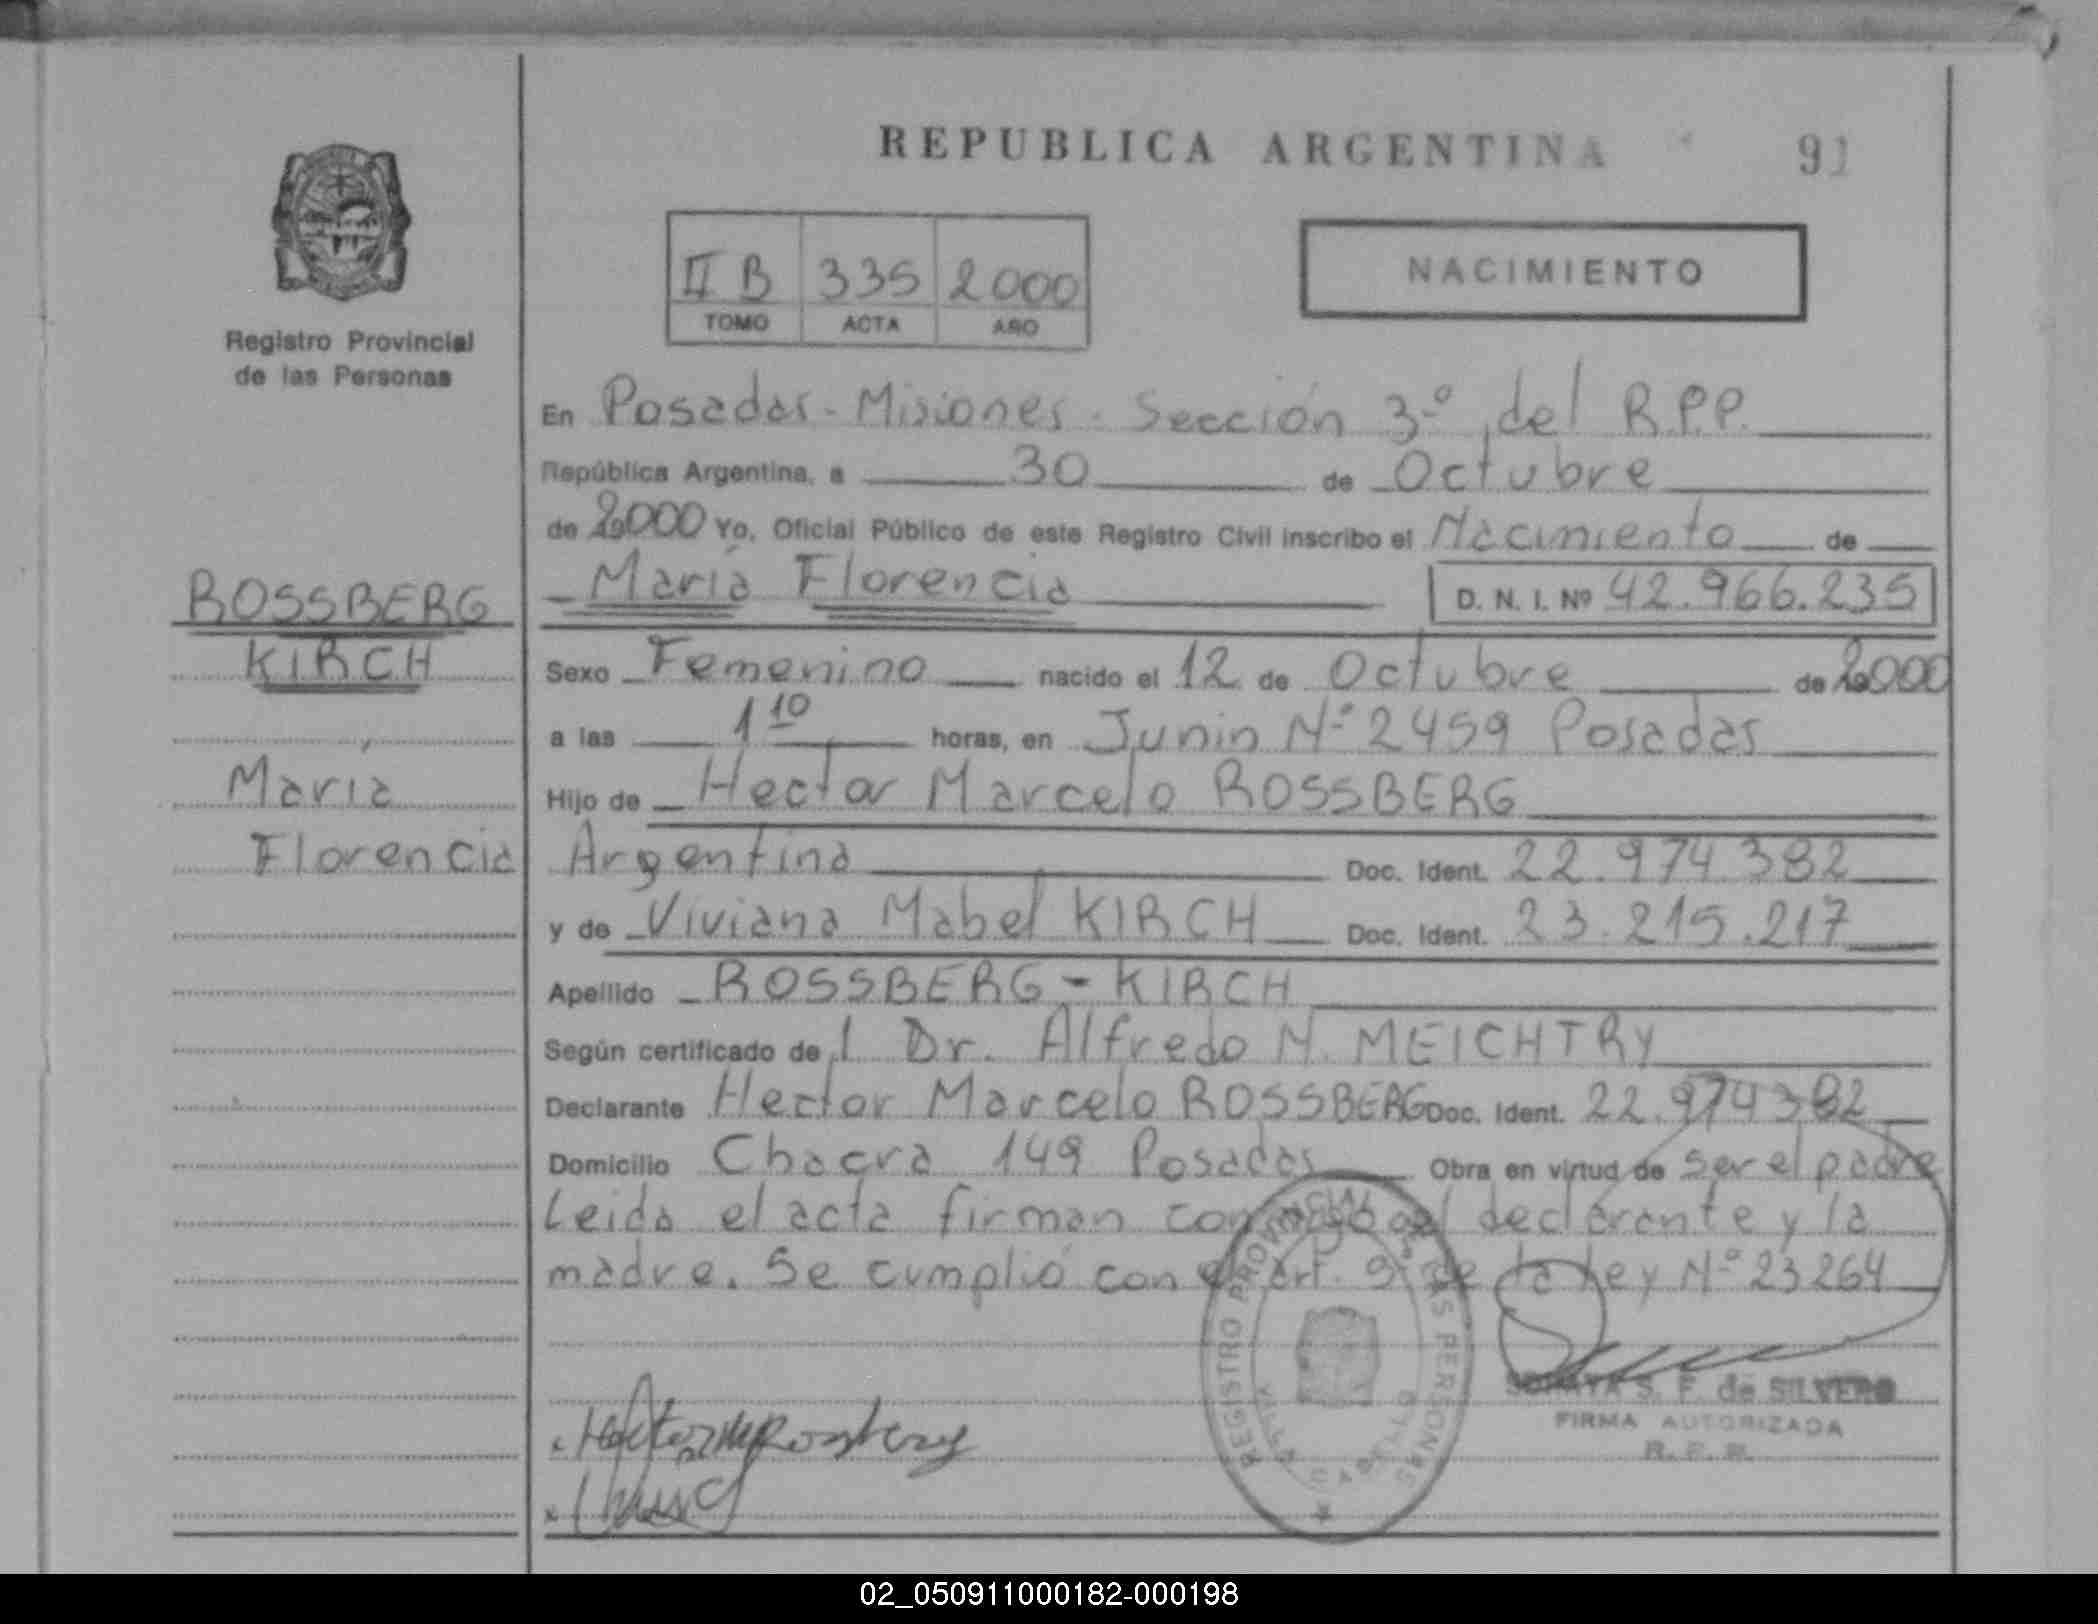 REPUBLICA ARGENTINA
91
Registro Provincial
de las Personas
II B 335 2000
TOMO ACTA AÑO
NACIMIENTO
En Posadas - Misiones - Sección 3º del R.P.P.
República Argentina, a 30 de Octubre
de 2000 Yo, Oficial Público de este Registro Civil inscribo el Nacimiento de
María Florencia D. N. I. Nº 42.966.235
ROSSBERG
KIRCH
María
Florencia
Sexo Femenino nacido el 12 de Octubre de 2000
a las 1 10 horas, en Junin Nº 2459 Posadas
Hijo de Hector Marcelo ROSSBERG
Argentina Doc. Ident. 22.974.382
y de Viviana Mabel KIRCH Doc. Ident. 23.215.217
Apellido ROSSBERG - KIRCH
Según certificado de l Dr. Alfredo N. MEICHTRY
Declarante Hector Marcelo ROSSBERG Doc. Ident. 22.974382
Domicilio Chacra 149 Posadas Obra en virtud de ser el padre
Leida el acta firman conmigo el declarante y la
madre. Se cumplió con el art. 5º de la Ley Nº 23264
REGISTRO PROVINCIAL DE LAS PERSONAS
S. F. de SILVERO
FIRMA AUTORIZADA
R. P. P.
02_050911000182-000198